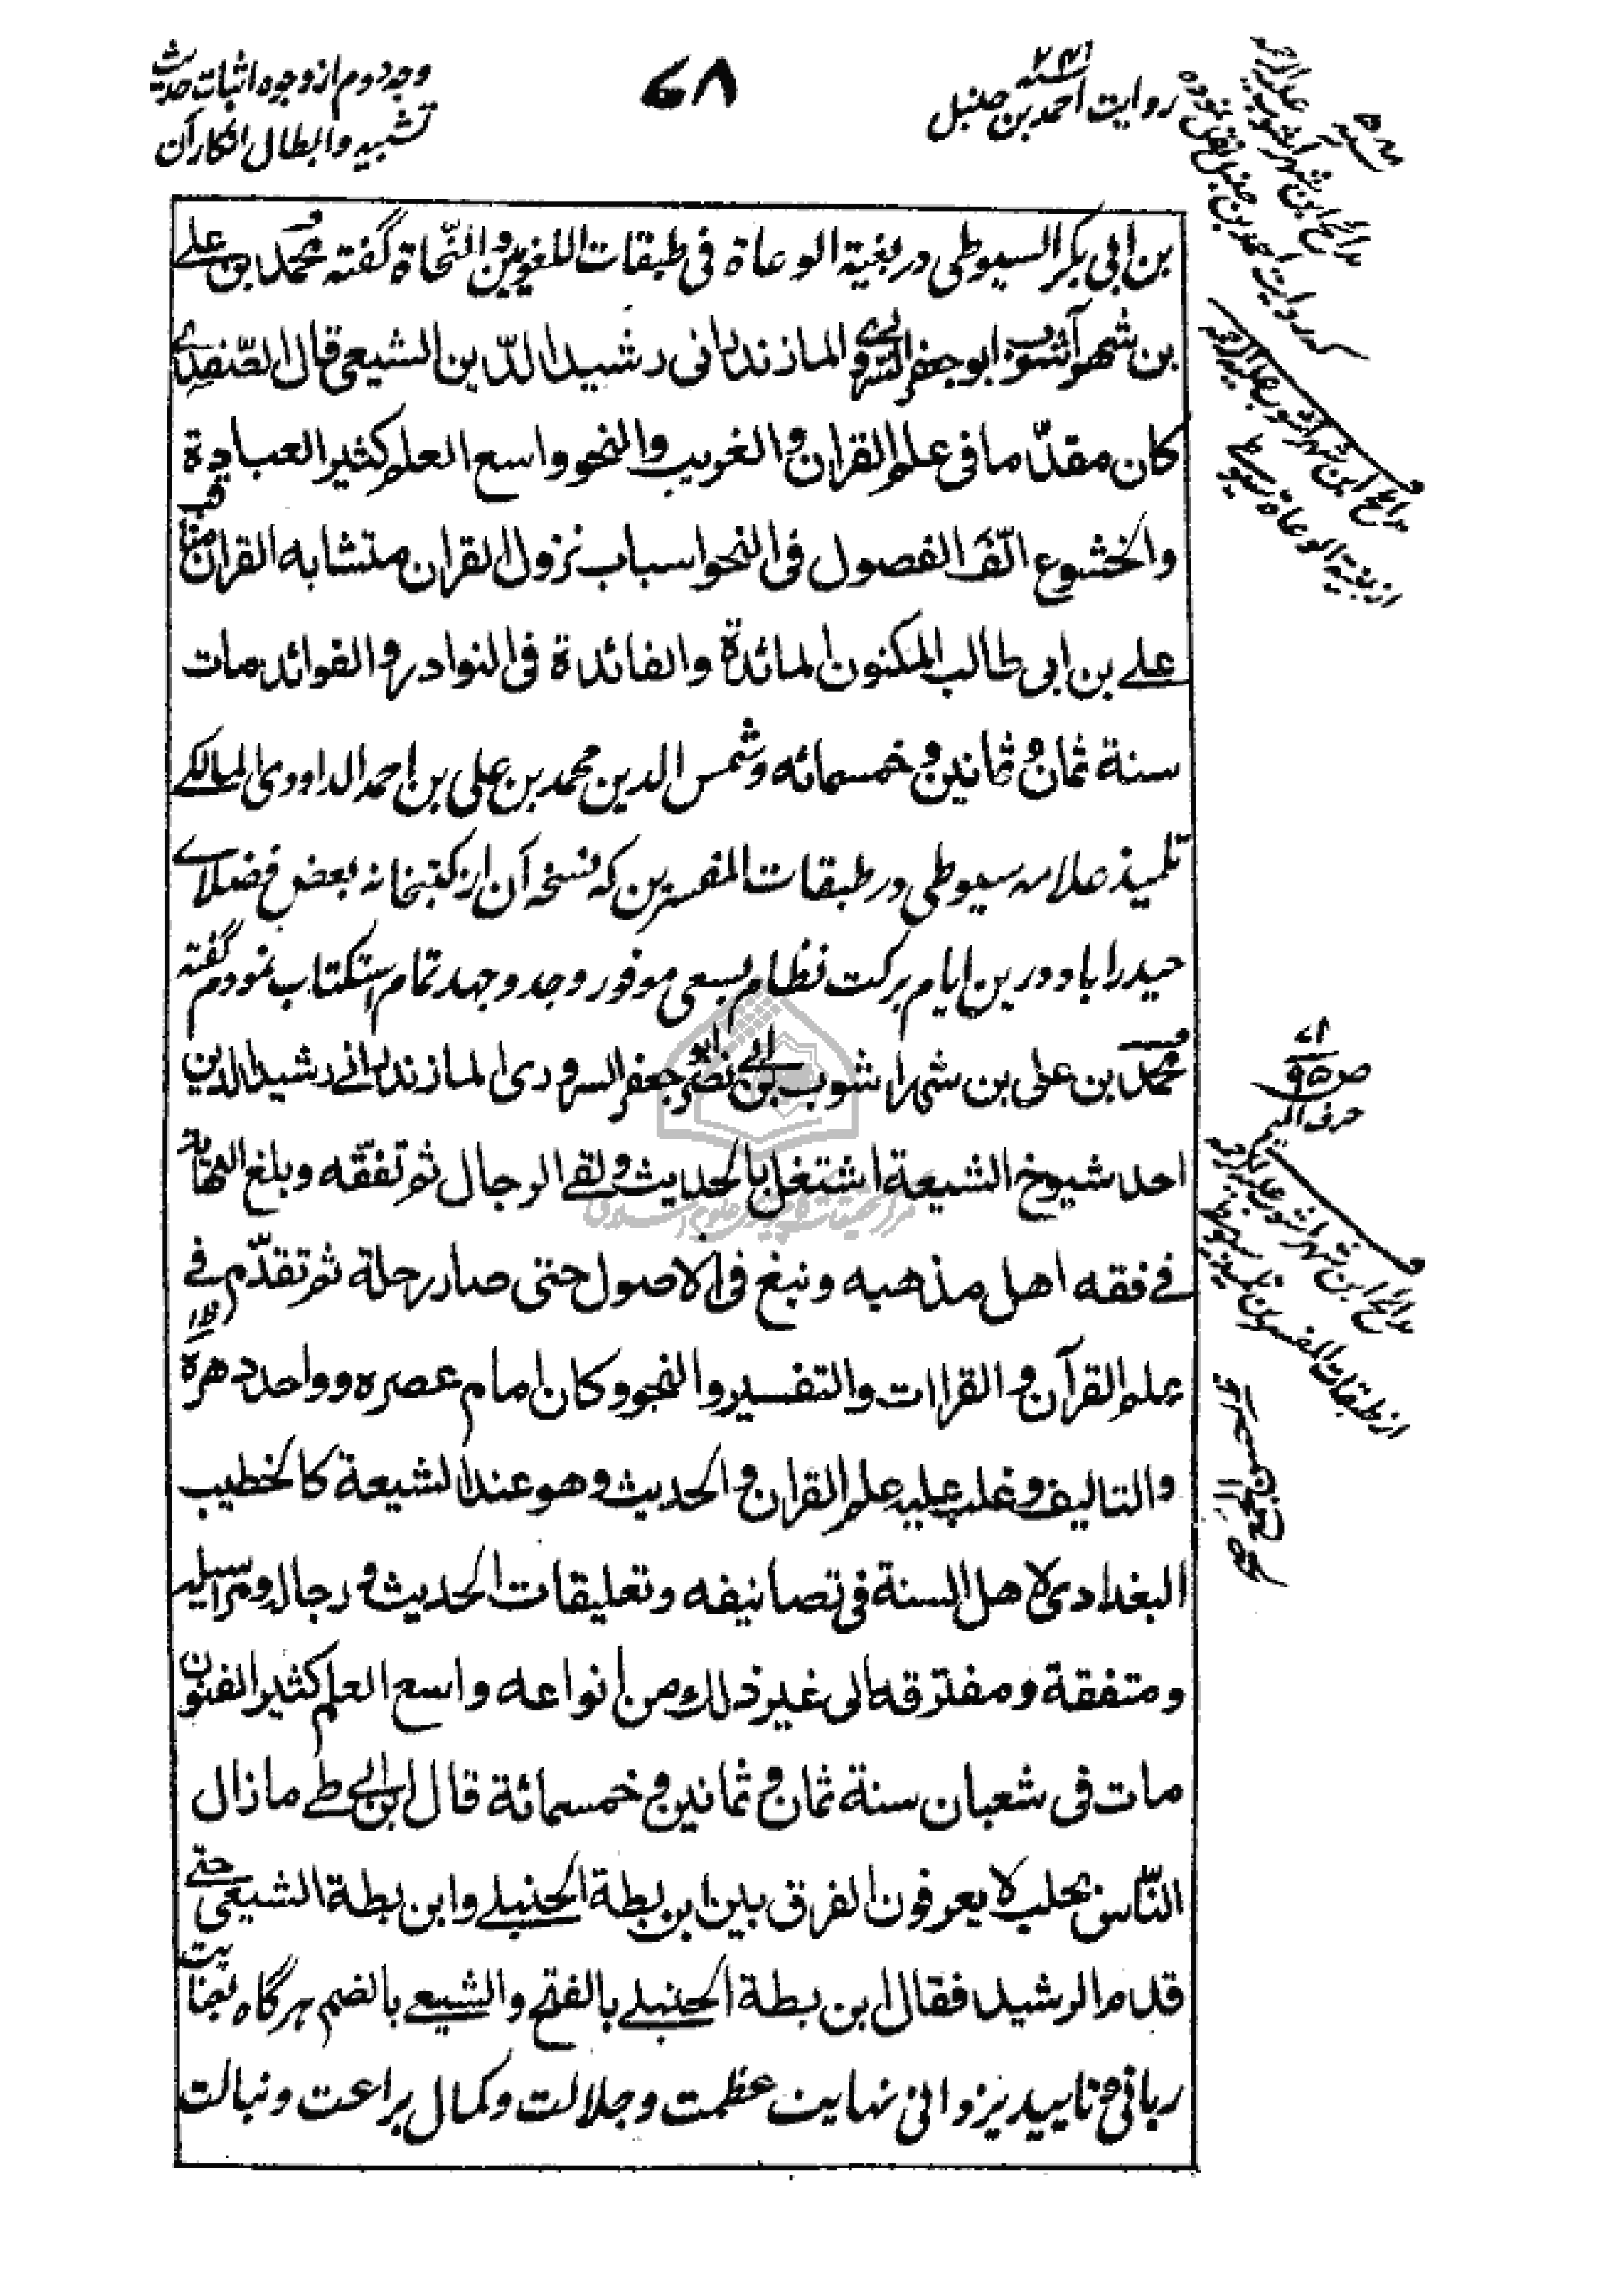 وجه دوم از وجوه اثبات حدیث
تشبیه و ابطال انکار آن
۶۸
روایت احمد بن حنبل
۲۴۱
مدائح ابن شهر آشوب علیه الرحمه
که روایت احمد بن حنبل نقل نموده
بن ابی بکر السیوطی در بغیة الوعاة فی طبقات اللغویین و النّحاة گفته محمّد بن علے
بن شهرآشوب ابو جعفر السروے المازندرانی رشید الدّین الشیعی قال الصّفدے
کان مقدّما فی علم القران و الغریب و النحو واسع العلم کثیر العبادة
والخشوع الّف الفصول فی النحو اسباب نزول القران متشابه القران مناقب
علے بن ابی طالب المکنون المائدة والفائدة فی النوادر و الفوائد مات
سنة ثمان و ثمانین و خمسمائه و شمس الدین محمد بن علی بن احمد الداودی المالکے
تلمیذ علامه سیوطی در طبقات المفسرین که نسخه آن از کتبخانه بعض فضلاے
حیدراباد درین ایام برکت نظام بسعی موفور و جد و جهد تمام استکتاب نمودم گفته
محمّد بن علی بن شهراشوب بن ابی نصر ابو جعفر السرودی المازندرانے رشید الدین
احد شیوخ الشیعة اشتغل بالحدیث و لقے الرجال ثم تفقّه و بلغ النهایة
فے فقه اهل مذهبه و نبغ فی الاصول حتی صار رحلة ثم تقدّم فے
علم القرآن و القراات و التفسیر و النحو و کان امام عصره و واحد دهره
والتالیف و غلب علیه علم القران و الحدیث و هو عند الشیعة کالخطیب
البغدادی لاهل السنة فی تصانیفه و تعلیقات الحدیث و رجاله و مراسیله
و متفقة و مفترقه الی غیر ذلك من انواعه واسع العلم کثیر الفنون
مات فی شعبان سنة ثمان و ثمانین و خمسمائة قال ابن ابی طے مازال
النّاس بحلب لا یعرفون الفرق بین ابن بطة الحنبلے و ابن بطة الشیعی حتے
قدم الرشید فقال ابن بطة الحنبلے بالفتح و الشیعے بالضم هرگاه بعنایت
ربانی و تایید یزدانی نهایت عظمت و جلالت و کمال براعت و نبالت
مدائح ابن شهراشوب علیه الرحمه
از بغیة الوعاة سیوطی
حرف المیم
مدائح ابن شهراشوب
از طبقات المفسرین